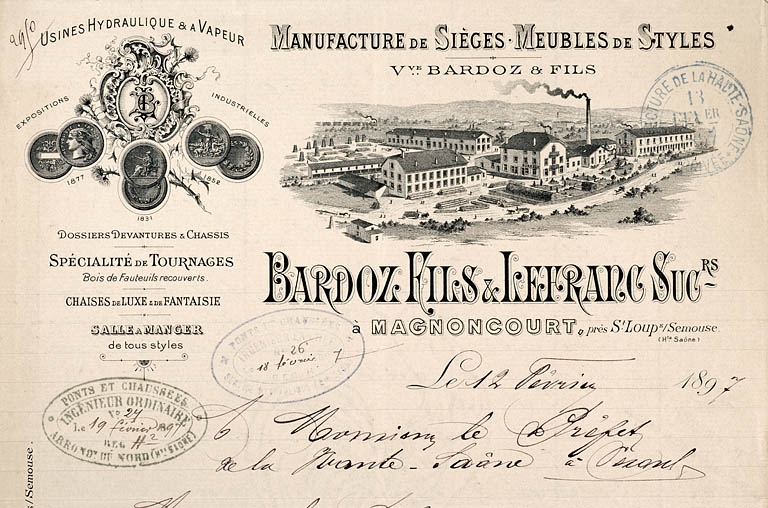 2950
USINES HYDRAULIQUE & A VAPEUR
EXPOSITIONS INDUSTRIELLES
1877 1831 1852
DOSSIERS DEVANTURES & CHASSIS
SPÉCIALITÉ DE TOURNAGES
Bois de Fauteuils recouverts.
CHAISES DE LUXE & DE FANTAISIE
SALLE A MANGER
de tous styles
MANUFACTURE DE SIÈGES - MEUBLES DE STYLES
VVE BARDOZ & FILS
PRÉFECTURE DE LA HAUTE-SAÔNE
13
FÉVRIER
BARDOZ FILS & LEFRANC SUCRS
à MAGNONCOURT, près St Loup s/Semouse.
(Hte Saône)
PONTS ET CHAUSSÉES
26
18 février 7
Le 12 Février 1897
PONTS ET CHAUSSÉES
INGÉNIEUR ORDINAIRE
No 24
Le 19 février 1897
REG H2
ARRONDT DU NORD (Hte SAÔNE)
Monsieur le Préfet
de la Haute-Saône à Vesoul
s/Semouse.